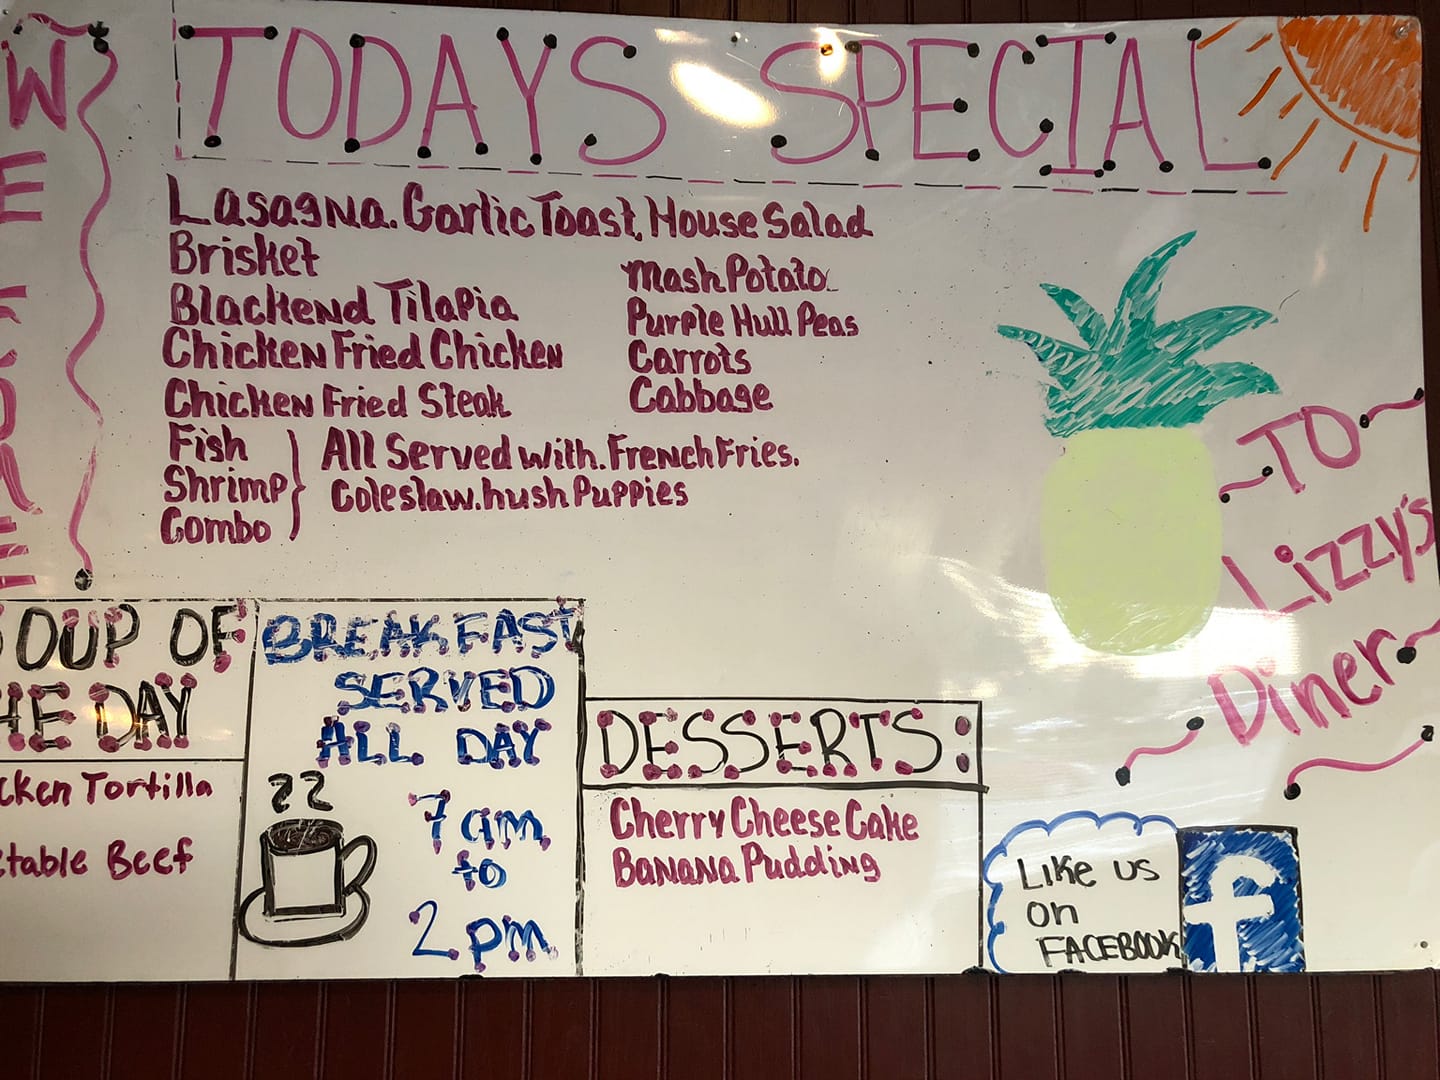 TODAYS SPECIAL
Lasagna. Garlic Toast, House Salad
Brisket
Blackend Tilapia
Chicken Fried Chicken
Chicken Fried Steak
Mash Potato
Purple Hull Peas
Carrots
Cabbage
Fish
Shrimp
Combo
All Served with. French Fries.
Coleslaw. hush Puppies
TO
Lizzy's
Diner
OUP OF
HE DAY
cken Tortilla
etable Beef
BREAKFAST
SERVED
ALL DAY
7 am
to
2 pm
DESSERTS:
Cherry Cheese Cake
Banana Pudding
Like us
on
FACEBOOK
f